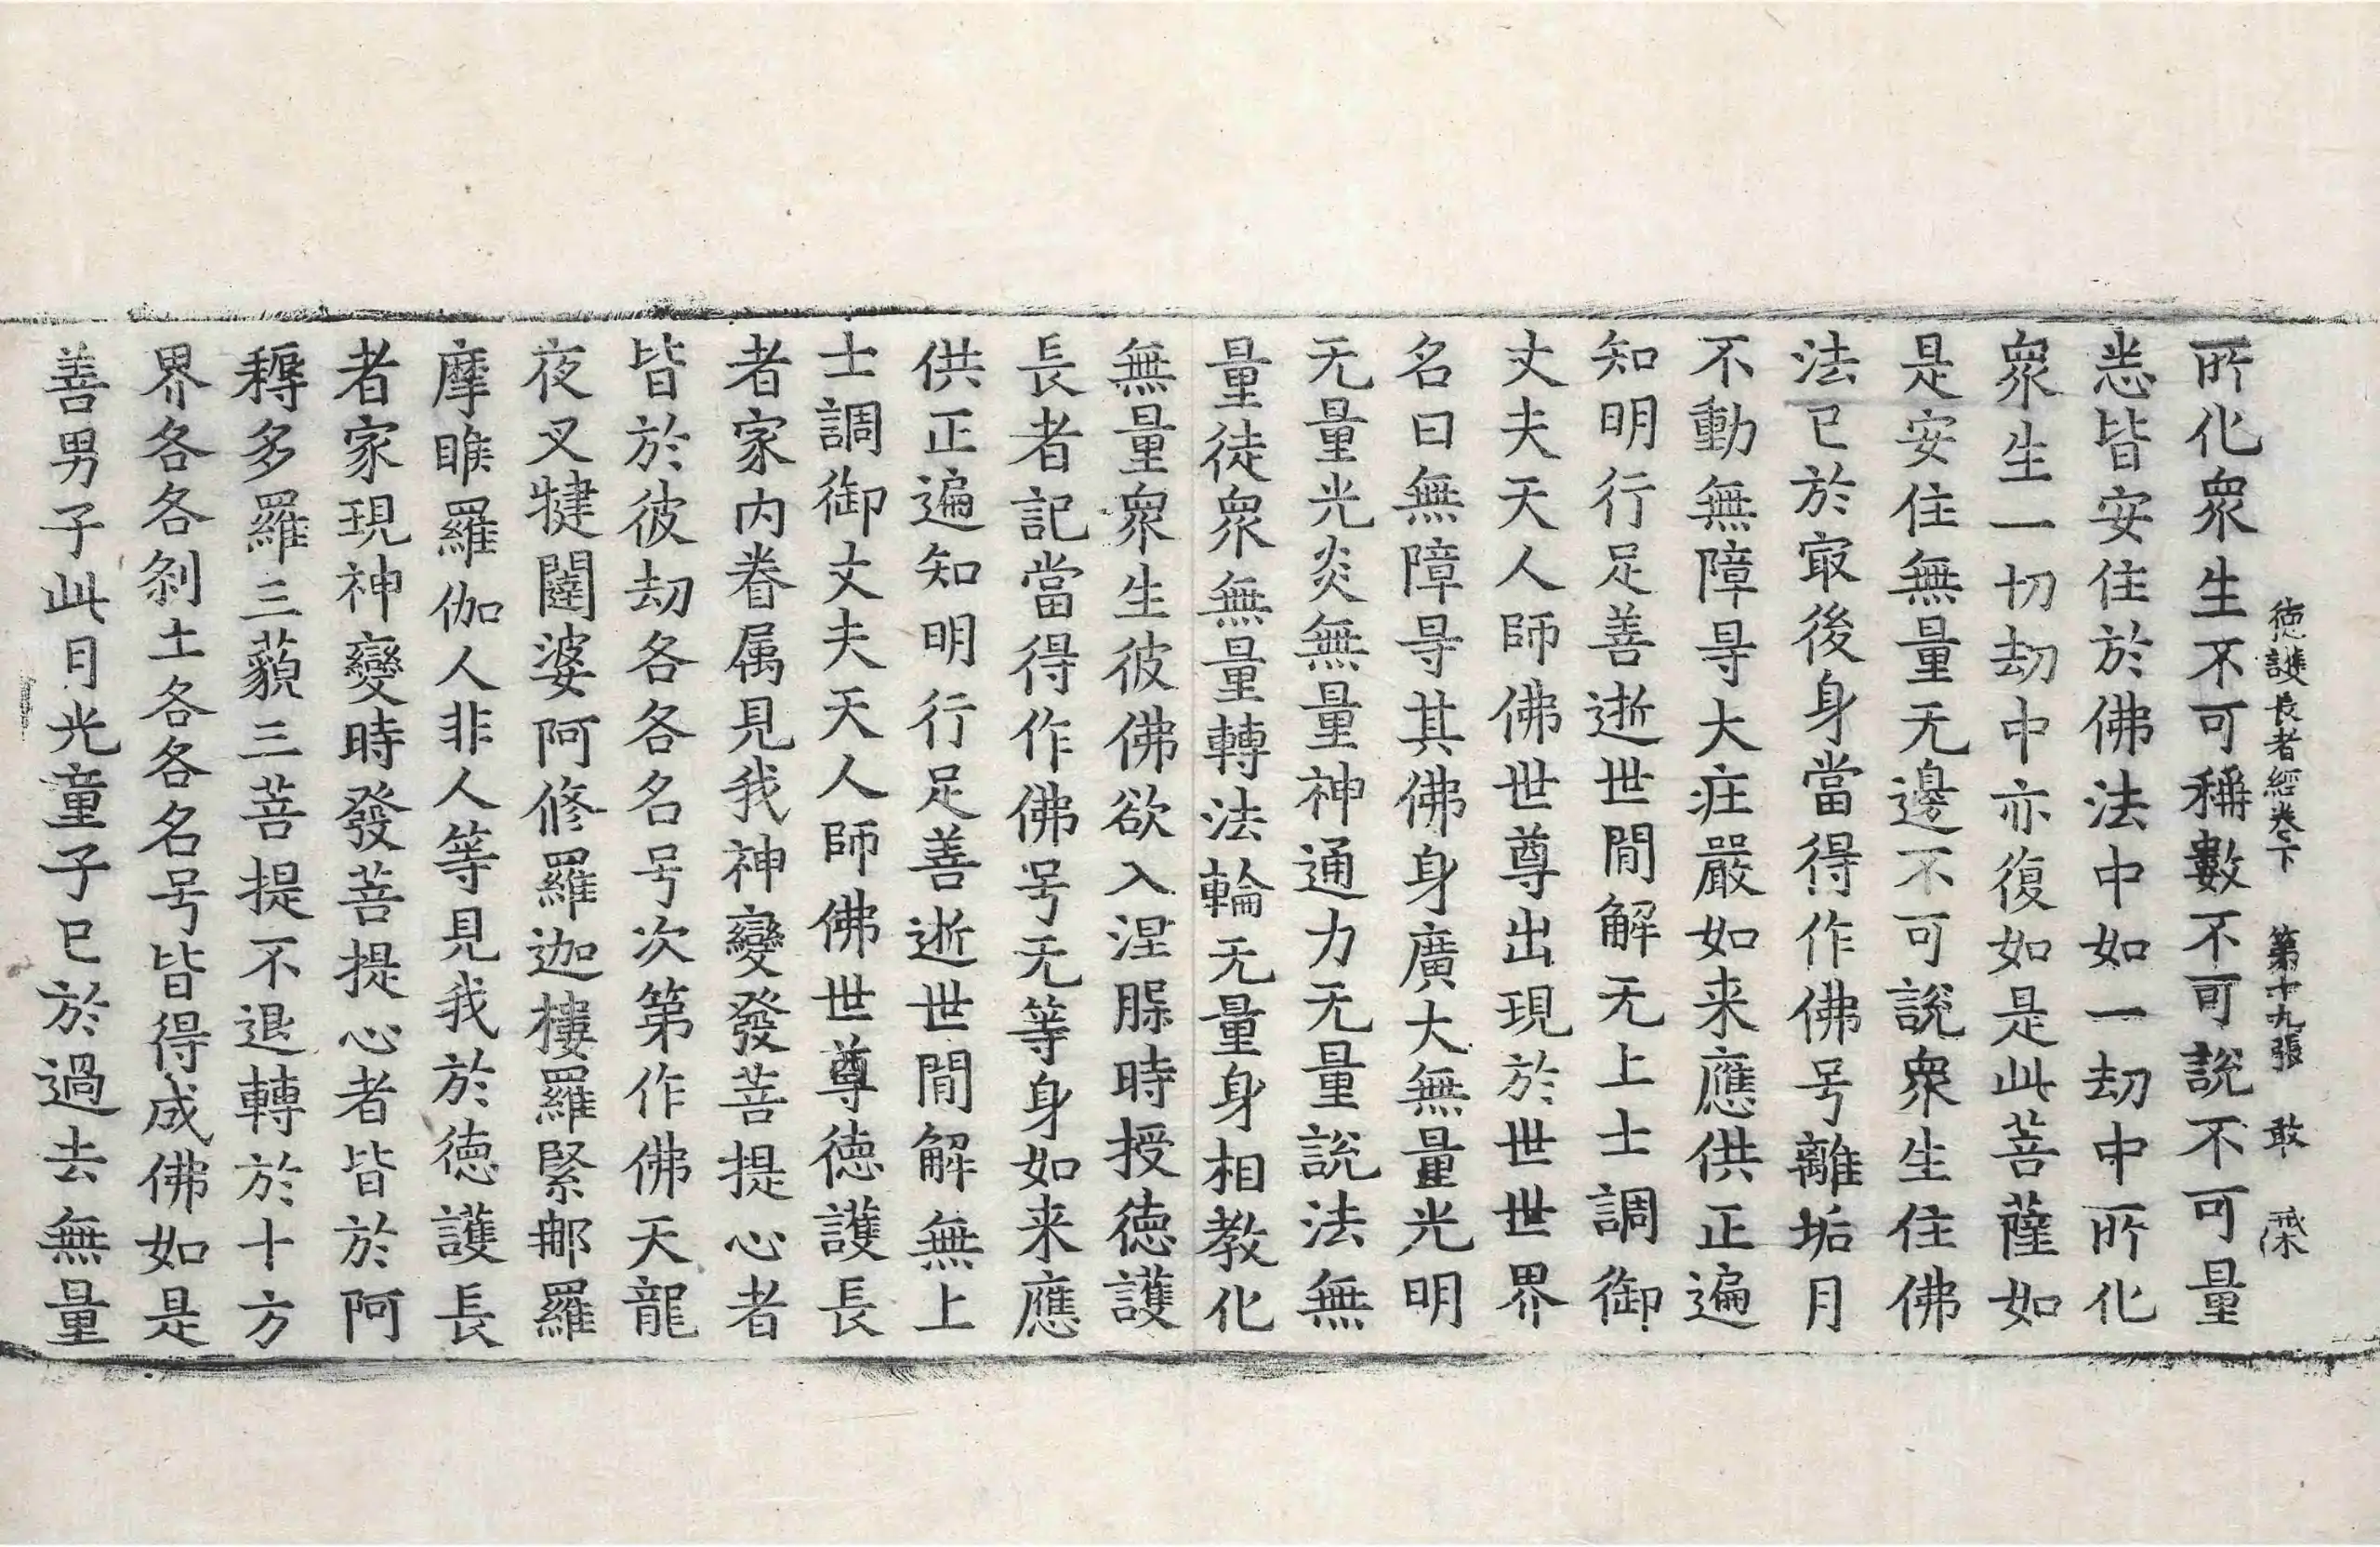 德護長者經卷下 第十九張 敢
所化衆生不可稱數不可說不可量
悉皆安住於佛法中如一劫中所化
衆生一切劫中亦復如是此菩薩如
是安住無量无邊不可說衆生住佛
法已於㝡後身當得作佛号離垢月
不動無障㝵大庄嚴如来應供正遍
知明行足善逝世閒解无上士調御
丈夫天人師佛世尊出現於世世界
名曰無障㝵其佛身廣大無量光明
无量光炎無量神通力无量說法無
量徒衆無量轉法輪无量身相教化
無量衆生彼佛欲入涅脲時授德護
長者記當得作佛号无等身如来應
供正遍知明行足善逝世閒解無上
士調御丈夫天人師佛世尊德護長
者家内眷属見我神變發菩提心者
皆於彼劫各各名号次第作佛天龍
夜叉揵闥婆阿修羅迦樓羅緊那羅
摩睺羅伽人非人等見我於德護長
者家現神變時發菩提心者皆於阿
耨多羅三藐三菩提不退轉於十方
界各各刹土各各名号皆得成佛如是
善男子此月光童子已於過去無量